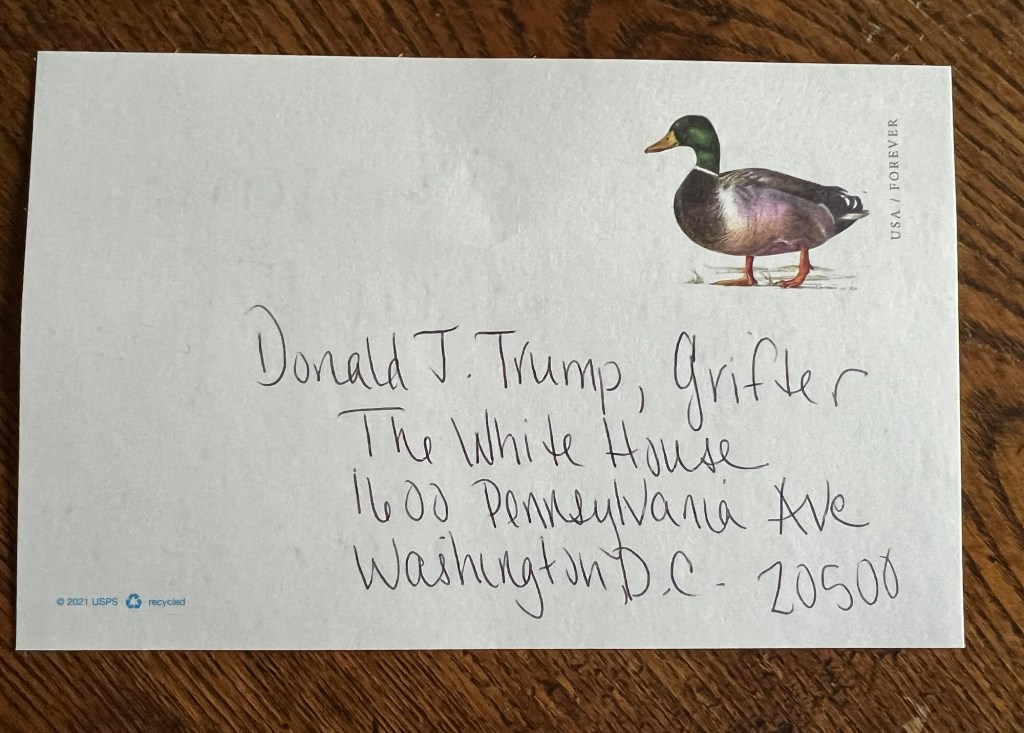 USA / FOREVER
Donald J. Trump, Grifter
The White House
1600 Pennsylvania Ave
Washington, D.C. 20500
© 2021 USPS recycled